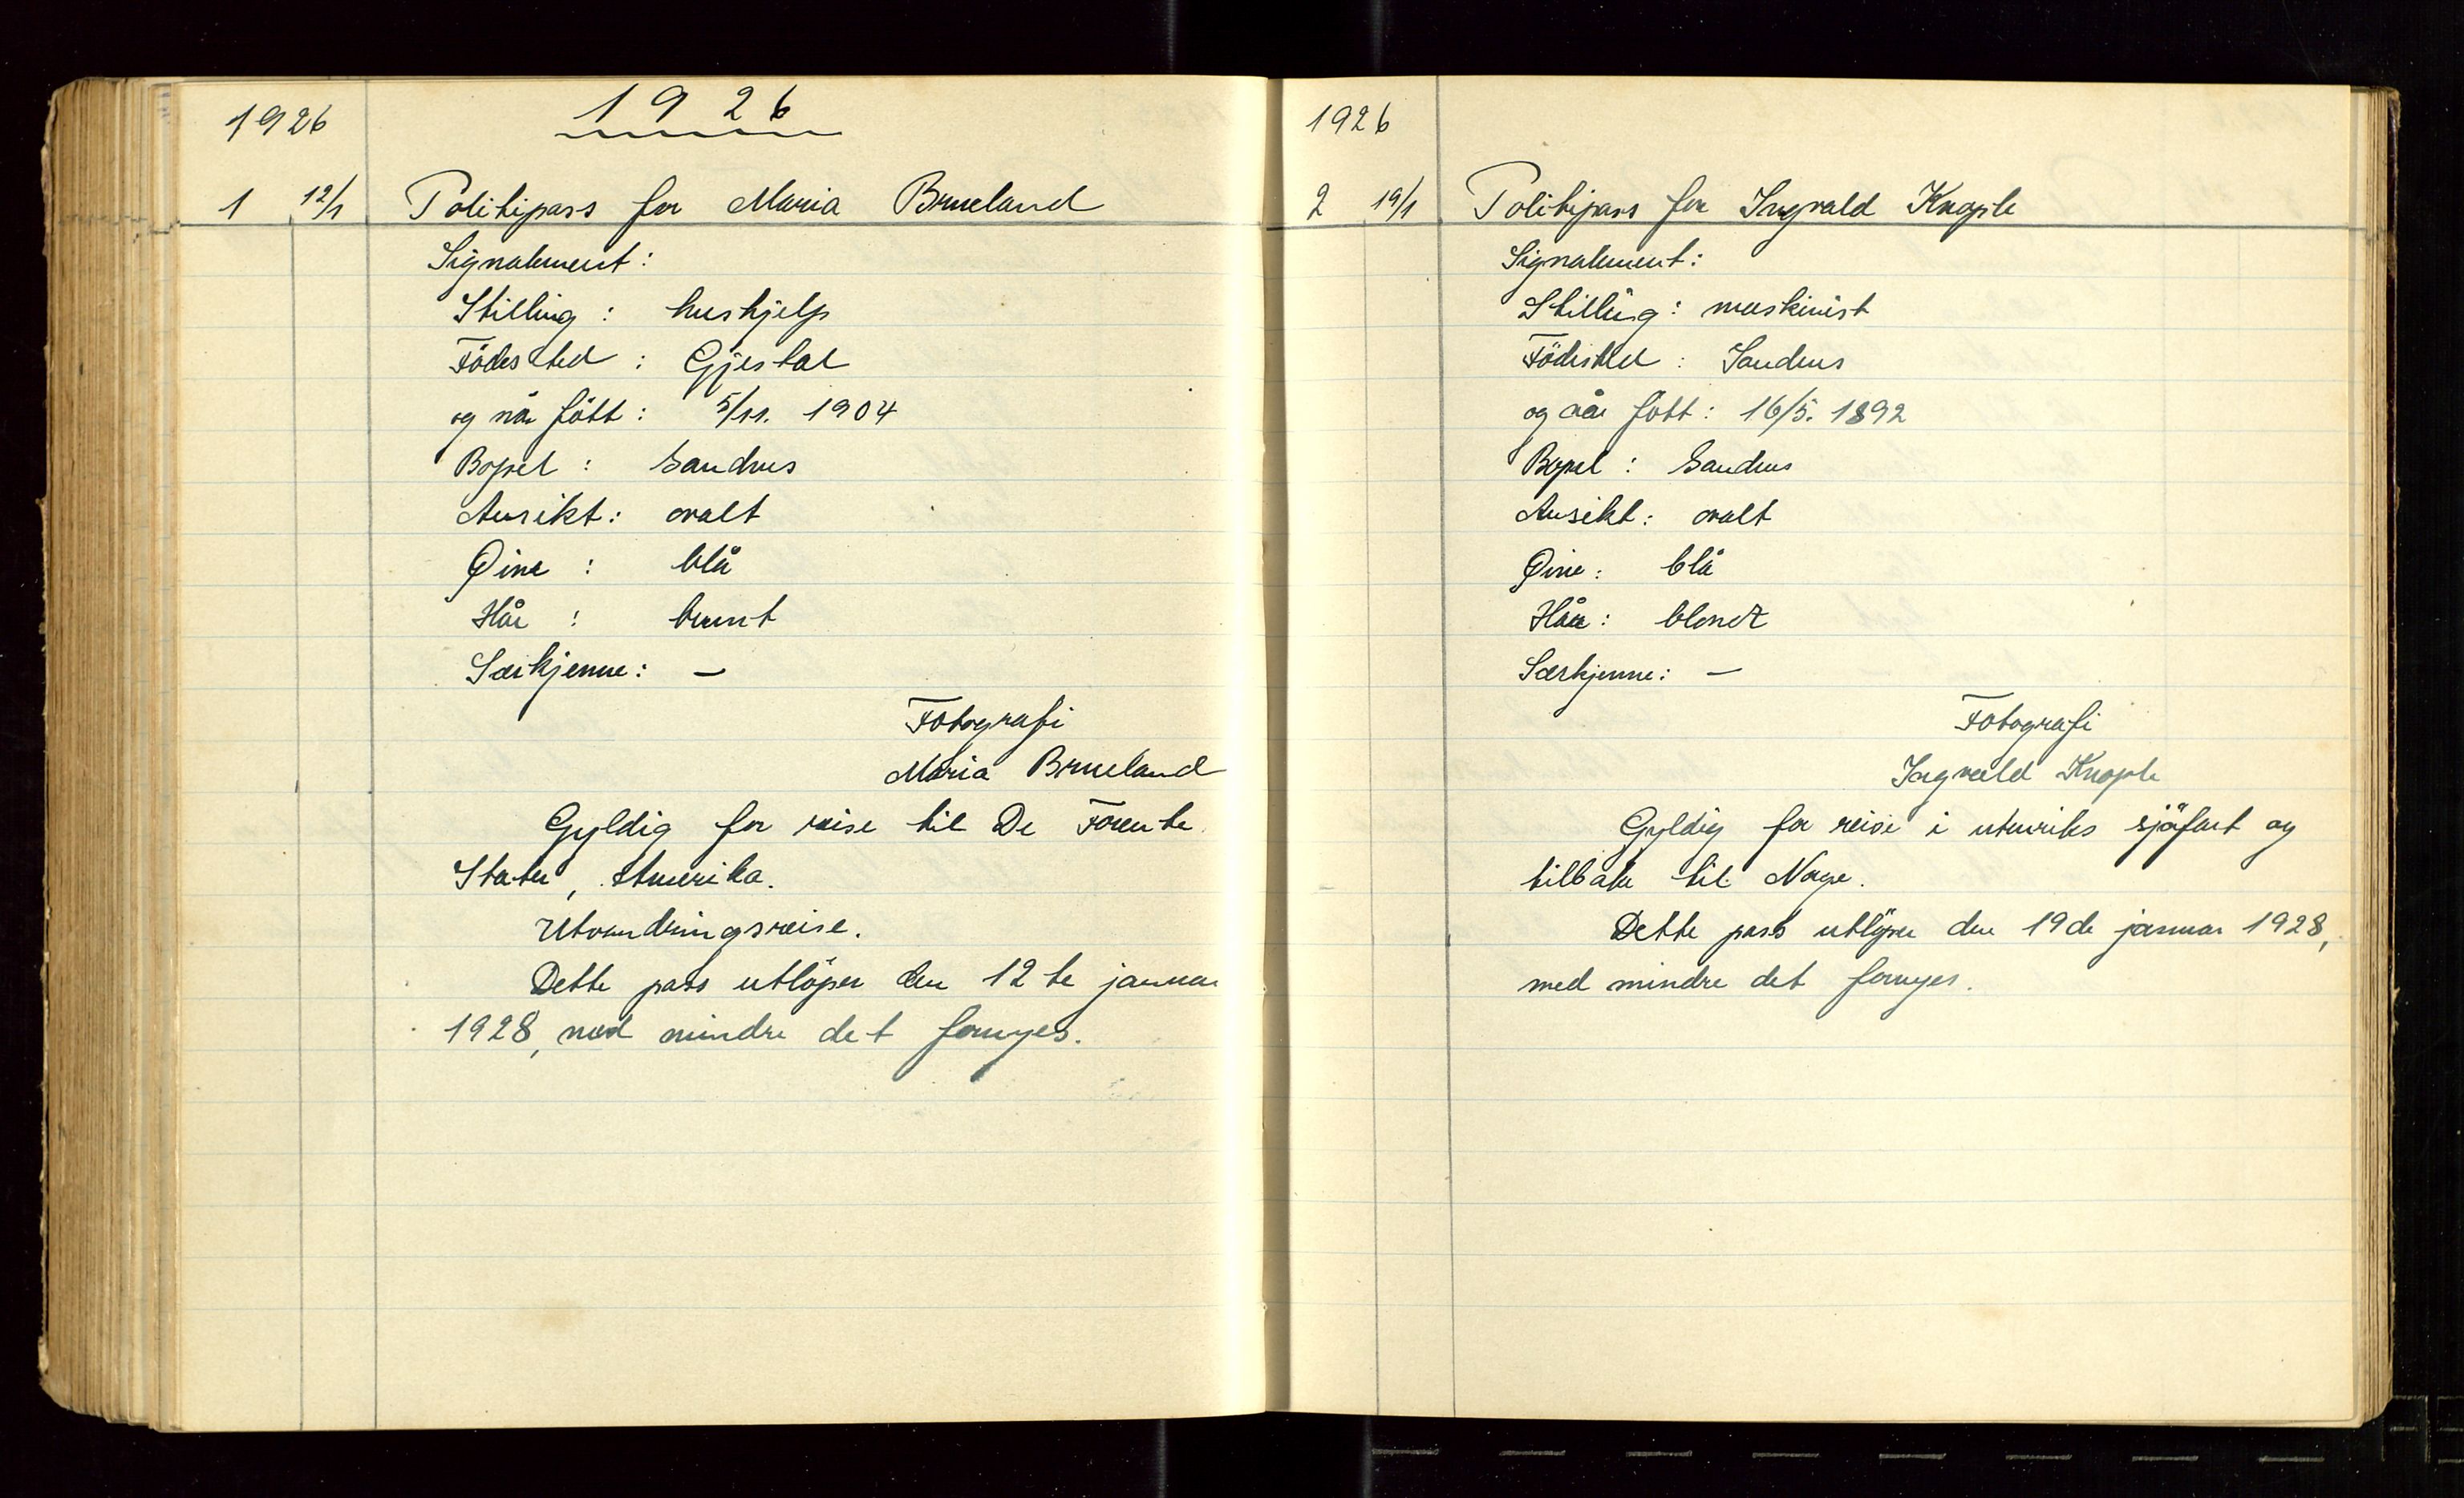 1926
1926
1 12/1 Politipass for Maria Brueland
Signalement:
Stilling : hushjelp
Födested : Gjestal
og når fött : 5/11. 1904
Bopel : Sandnes
Ansikt : ovalt
Øine : blå
Hår : brunt
Særkjenne: —
Fotografi
Maria Brueland
Gyldig for reise til De Forente
Stater, Amerika.
Utvandringsreise.
Dette pass utlöper den 12te januar
1928, med mindre det fornyes.
1926
2 19/1 Politipass for Ingvald Kvople
Signalement:
Stilling: maskinist
Födested : Sandnes
og når fött : 16/5. 1892
Bopel : Sandnes
Ansikt : ovalt
Øine : blå
Hår : blondt
Særkjenne: —
Fotografi
Ingvald
Gyldig for reise i utenriks sjöfart og
tilbake til Norge.
Dette pass utlöper den 19de januar 1928,
med mindre det fornyes.